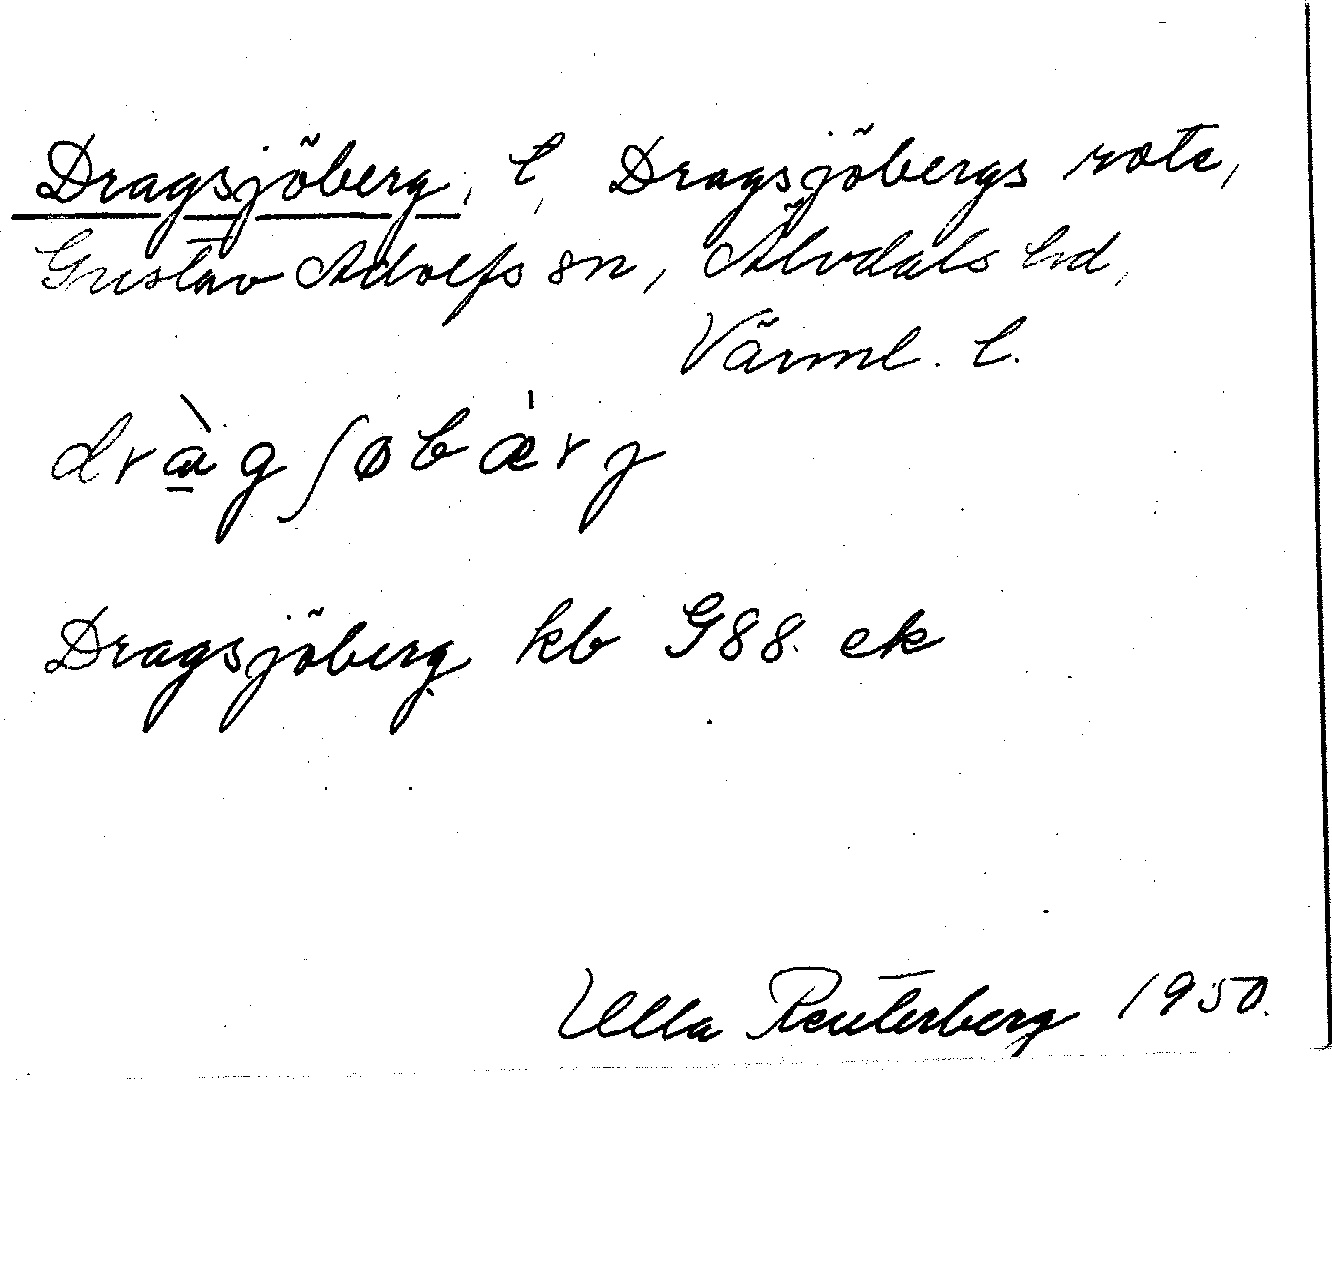 Dragsjöberg, l, Dragsjöbergs rote,
Gustav Adolfs sn, Älvdals hd,
Värml. l.
dràgʃøbæ̀rj
Dragsjöberg kb G88. ek
Ulla Reuterberg 1950.